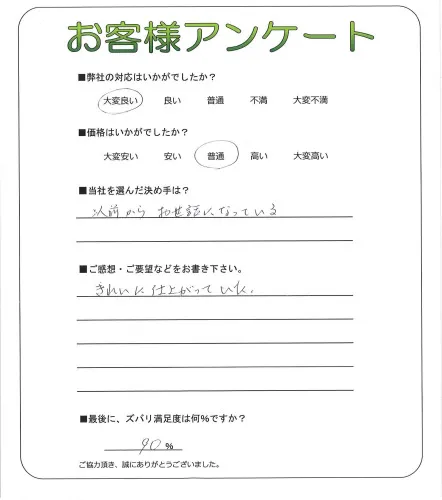 お客様アンケート
■弊社の対応はいかがでしたか?
大変良い 良い 普通 不満 大変不満
■価格はいかがでしたか?
大変安い 安い 普通 高い 大変高い
■当社を選んだ決め手は?
以前から お世話になっている
■ご感想・ご要望などをお書き下さい。
きれいに仕上がっていた。
■最後に、ズバリ満足度は何%ですか?
90 %
ご協力頂き、誠にありがとうございました。